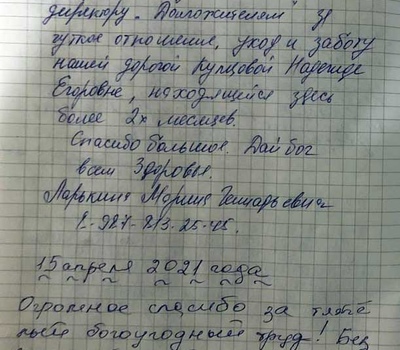 директору. Долюжителям за
чуткое отношение, уход и заботу
нашей дорогой Купцовой Надежде
Егоровне, находящейся здесь
более 2х месяцев.
Спасибо большое. Дай бог
всем Здоровье.
Ларькина Мария Генадьевич
8-927-213-25-45.
15 апреля 2021 года
Огромное спасибо за тяжё
лый богоугодный труд! Без